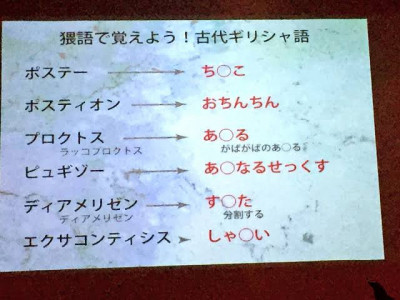 猥語で覚えよう！古代ギリシャ語
ポステー → ち○こ
ポスティオン → おちんちん
プロクトス → あ○る
ラッコプロクトス がばがばのあ○る
ピュギゾー → あ○なるせっくす
ディアメリゼン → す○た
ディアメリゼン 分割する
エクサコンティシス → しゃ○い